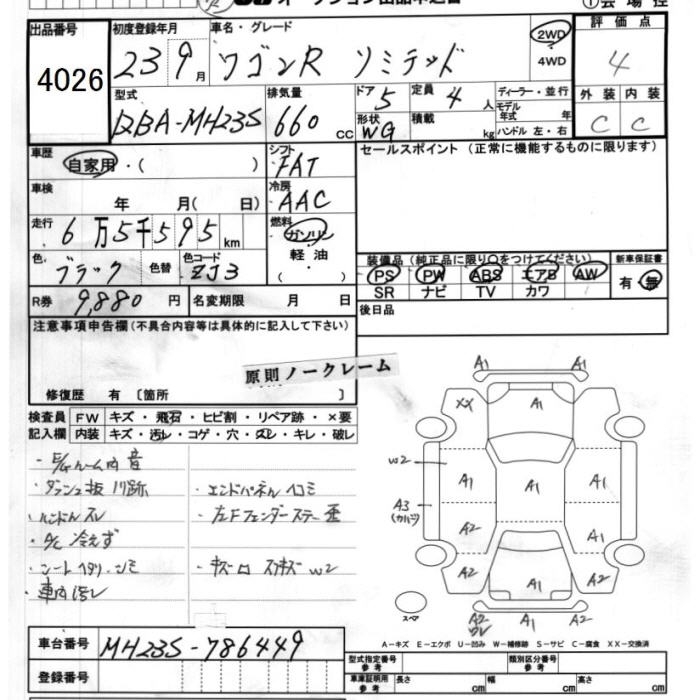 オークション出品申込書
出品番号
4026
初度登録年月
23 9月
車名・グレード
ワゴンR リミテッド
2WD
4WD
評価点
4
外装 内装
C C
型式
DBA-MH23S
排気量
660 CC
ドア 5
形状 WG
定員 4 人
積載 kg
ディーラー・並行
モデル年式 年
ハンドル 左・右
車歴
自家用・( )
シフト
FAT
セールスポイント(正常に機能するものに限ります)
車検
年 月( 日)
冷房
AAC
走行
6万5千595km
燃料
ガソリン
軽油
( )
色
ブラック
色替
色コード
ZJ3
装備品(純正品に限り○をつけてください)
PS PW ABS エアB AW
SR ナビ TV カワ
新車保証書
有・無
R券 9,880円
名変期限 月 日
後日品
注意事項申告欄(不具合内容等は具体的に記入して下さい)
原則ノークレーム
修復歴 有〔箇所 〕
検査員記入欄
FW キズ・飛石・ヒビ割・リペア跡・×要
内装 キズ・汚レ・コゲ・穴・スレ・キレ・破レ
・E/Gルーム内 音
・ダッシュ板 爪跡
・エンドパネル ヘコミ
・ハンドル スレ
・左Fフェンダーステー 歪
・A/C 冷えず
・シート ヘタリ・シミ
・キズ 凹 スリキズ W2
・車内 汚レ
A1 A1
XX A1
W2
A1 A1 A1
A3
A2 A1
A2 A1 A2
スペア
A2 A2
A-キズ E-エクボ U-凹み W-補修跡 S-サビ C-腐食 XX-交換済
車台番号
MH23S-786449
登録番号
型式指定番号 参考
類別区分番号 参考
車庫証明用 参考 長さ cm 幅 cm 高さ cm